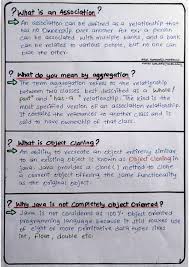 ? What is an Association?
An association can be defined as a relationship that
has no Ownership over another. For e.g. a person
can be associated with multiple banks, and a bank
can be related to various people, but no one can
own the other.
? What do you mean by aggregation?
The term aggregation refers to the relationship
between two classes best described as a "whole/
part" and "has-a" relationship. The kind is the
most specified version of an association relationship.
It contains the reference to another class and is
said to have ownership of that class.
? What is Object Cloning?
An ability to recreate an object entirely similar
to an existing object is known as Object Cloning in
Java. Java provides a clone() method to clone
a current object offering the same functionality
as the original object.
? Why Java is not Completely Object Oriented?
Java is not considered as 100% Object oriented
programming language because it still makes use
of eight or more primitive data types like
int, float, double etc.